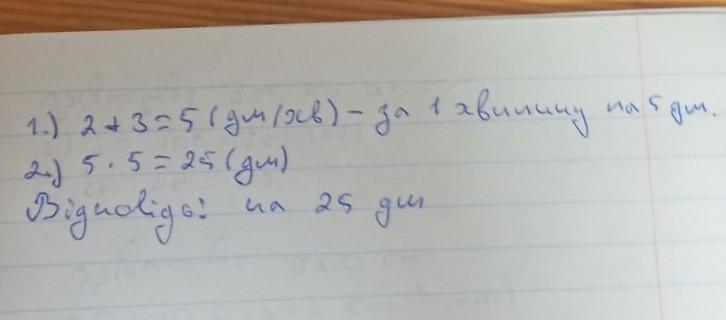 1.) 2 + 3 = 5 (дм/хв) - за 1 хвилину на 5 дм.
2.) 5 · 5 = 25 (дм)
Відповідь: на 25 дм